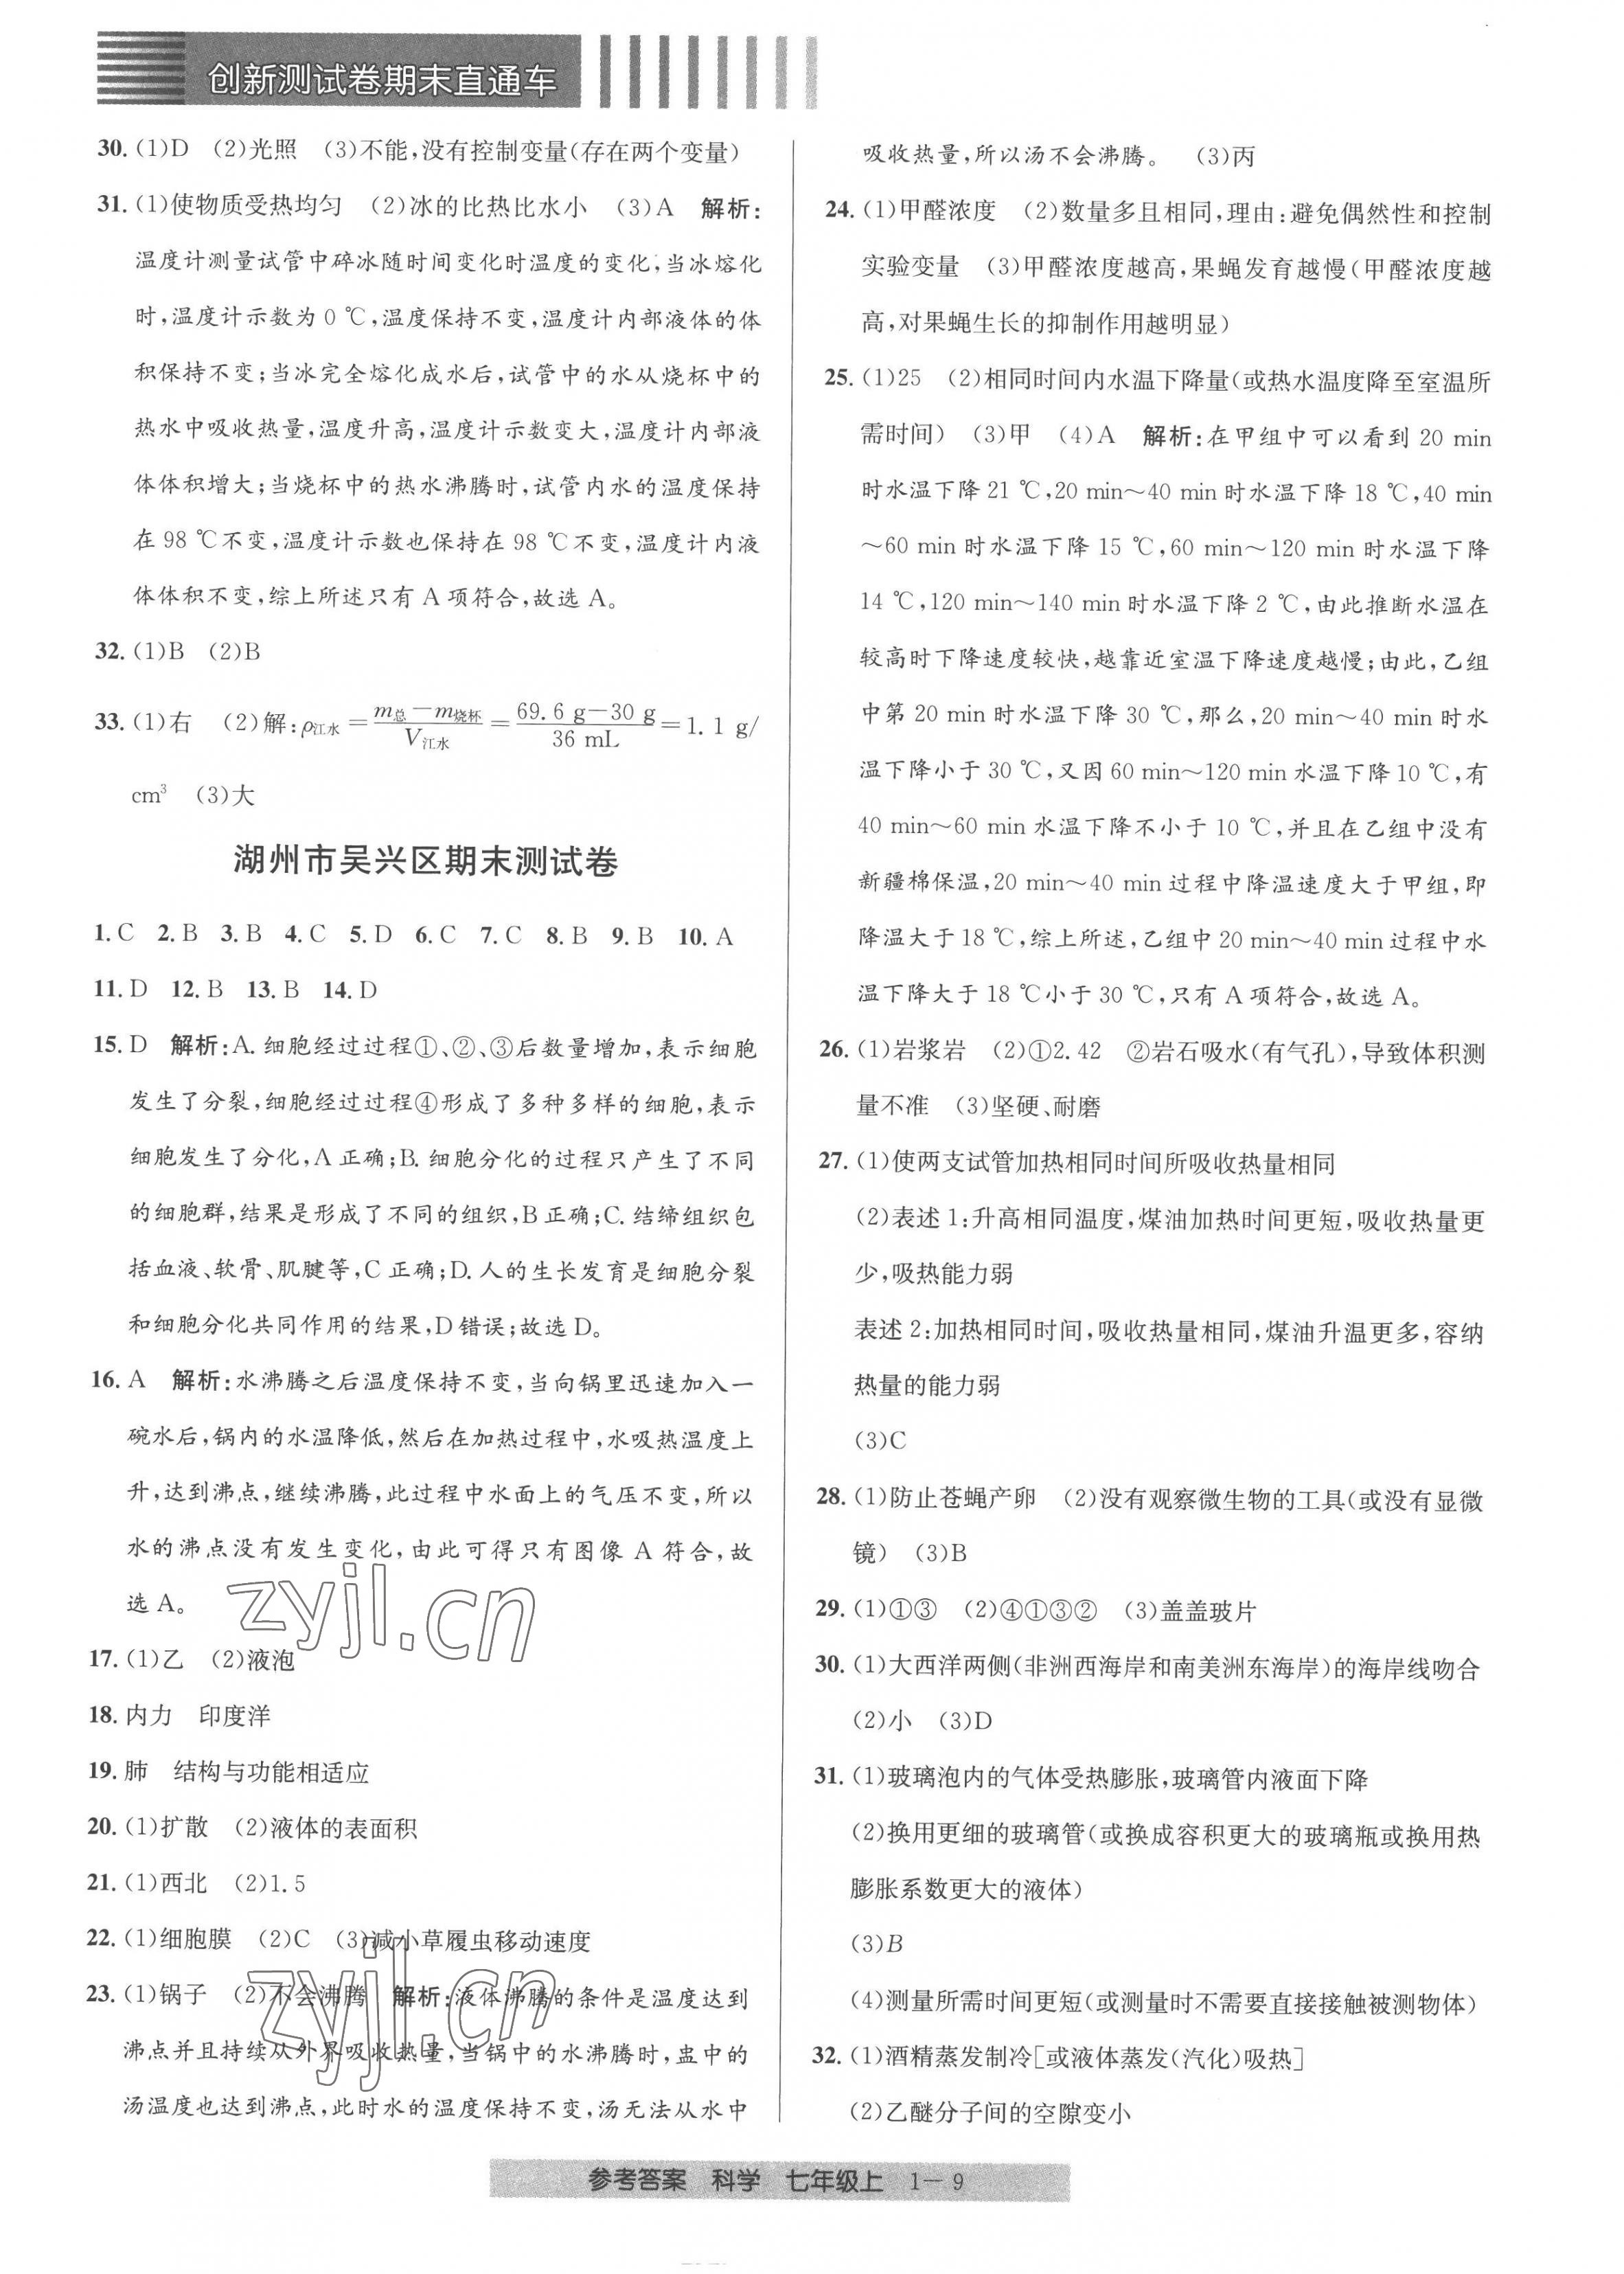 创新测试卷期末直通车
30. (1)D (2)光照 (3)不能,没有控制变量(存在两个变量)
31. (1)使物质受热均匀 (2)冰的比热比水小 (3)A 解析:
温度计测量试管中碎冰随时间变化时温度的变化,当冰熔化
时,温度计示数为0 ℃,温度保持不变,温度计内部液体的体
积保持不变;当冰完全熔化成水后,试管中的水从烧杯中的
热水中吸收热量,温度升高,温度计示数变大,温度计内部液
体体积增大;当烧杯中的热水沸腾时,试管内水的温度保持
在98 ℃不变,温度计示数也保持在98 ℃不变,温度计内液
体体积不变,综上所述只有A项符合,故选A。
32. (1)B (2)B
33. (1)右 (2)解:ρ江水=(m总-m烧杯)/V江水=(69.6 g-30 g)/36 mL=1.1 g/
cm³ (3)大
湖州市吴兴区期末测试卷
1. C 2. B 3. B 4. C 5. D 6. C 7. C 8. B 9. B 10. A
11. D 12. B 13. B 14. D
15. D 解析:A. 细胞经过过程①、②、③后数量增加,表示细胞
发生了分裂,细胞经过过程④形成了多种多样的细胞,表示
细胞发生了分化,A正确;B. 细胞分化的过程只产生了不同
的细胞群,结果是形成了不同的组织,B正确;C. 结缔组织包
括血液、软骨、肌腱等,C正确;D. 人的生长发育是细胞分裂
和细胞分化共同作用的结果,D错误;故选D。
16. A 解析:水沸腾之后温度保持不变,当向锅里迅速加入一
碗水后,锅内的水温降低,然后在加热过程中,水吸热温度上
升,达到沸点,继续沸腾,此过程中水面上的气压不变,所以
水的沸点没有发生变化,由此可得只有图像A符合,故
选A。
zyjl.cn
17. (1)乙 (2)液泡
18. 内力 印度洋
19. 肺 结构与功能相适应
20. (1)扩散 (2)液体的表面积
21. (1)西北 (2)1.5
22. (1)细胞膜 (2)C (3)减小草履虫移动速度
23. (1)锅子 (2)不会沸腾 解析:液体沸腾的条件是温度达到
zyjl.cn
沸点并且持续从外界吸收热量,当锅中的水沸腾时,盅中的
汤温度也达到沸点,此时水的温度保持不变,汤无法从水中
吸收热量,所以汤不会沸腾。 (3)丙
24. (1)甲醛浓度 (2)数量多且相同,理由:避免偶然性和控制
实验变量 (3)甲醛浓度越高,果蝇发育越慢(甲醛浓度越
高,对果蝇生长的抑制作用越明显)
25. (1)25 (2)相同时间内水温下降量(或热水温度降至室温所
需时间) (3)甲 (4)A 解析:在甲组中可以看到20 min
时水温下降21 ℃,20 min~40 min时水温下降18 ℃,40 min
~60 min时水温下降15 ℃,60 min~120 min时水温下降
14 ℃,120 min~140 min时水温下降2 ℃,由此推断水温在
较高时下降速度较快,越靠近室温下降速度越慢;由此,乙组
中第20 min时水温下降30 ℃,那么,20 min~40 min时水
温下降小于30 ℃,又因60 min~120 min水温下降10 ℃,有
40 min~60 min水温下降不小于10 ℃,并且在乙组中没有
新疆棉保温,20 min~40 min过程中降温速度大于甲组,即
降温大于18 ℃,综上所述,乙组中20 min~40 min过程中水
温下降大于18 ℃小于30 ℃,只有A项符合,故选A。
26. (1)岩浆岩 (2)①2.42 ②岩石吸水(有气孔),导致体积测
量不准 (3)坚硬、耐磨
27. (1)使两支试管加热相同时间所吸收热量相同
(2)表述1:升高相同温度,煤油加热时间更短,吸收热量更
少,吸热能力弱
表述2:加热相同时间,吸收热量相同,煤油升温更多,容纳
热量的能力弱
(3)C
28. (1)防止苍蝇产卵 (2)没有观察微生物的工具(或没有显微
镜) (3)B
29. (1)①③ (2)④①③② (3)盖盖玻片
30. (1)大西洋两侧(非洲西海岸和南美洲东海岸)的海岸线吻合
(2)小 (3)D
31. (1)玻璃泡内的气体受热膨胀,玻璃管内液面下降
(2)换用更细的玻璃管(或换成容积更大的玻璃瓶或换用热
膨胀系数更大的液体)
(3)B
(4)测量所需时间更短(或测量时不需要直接接触被测物体)
32. (1)酒精蒸发制冷[或液体蒸发(汽化)吸热]
(2)乙醚分子间的空隙变小
参考答案 科学 七年级上 1－9